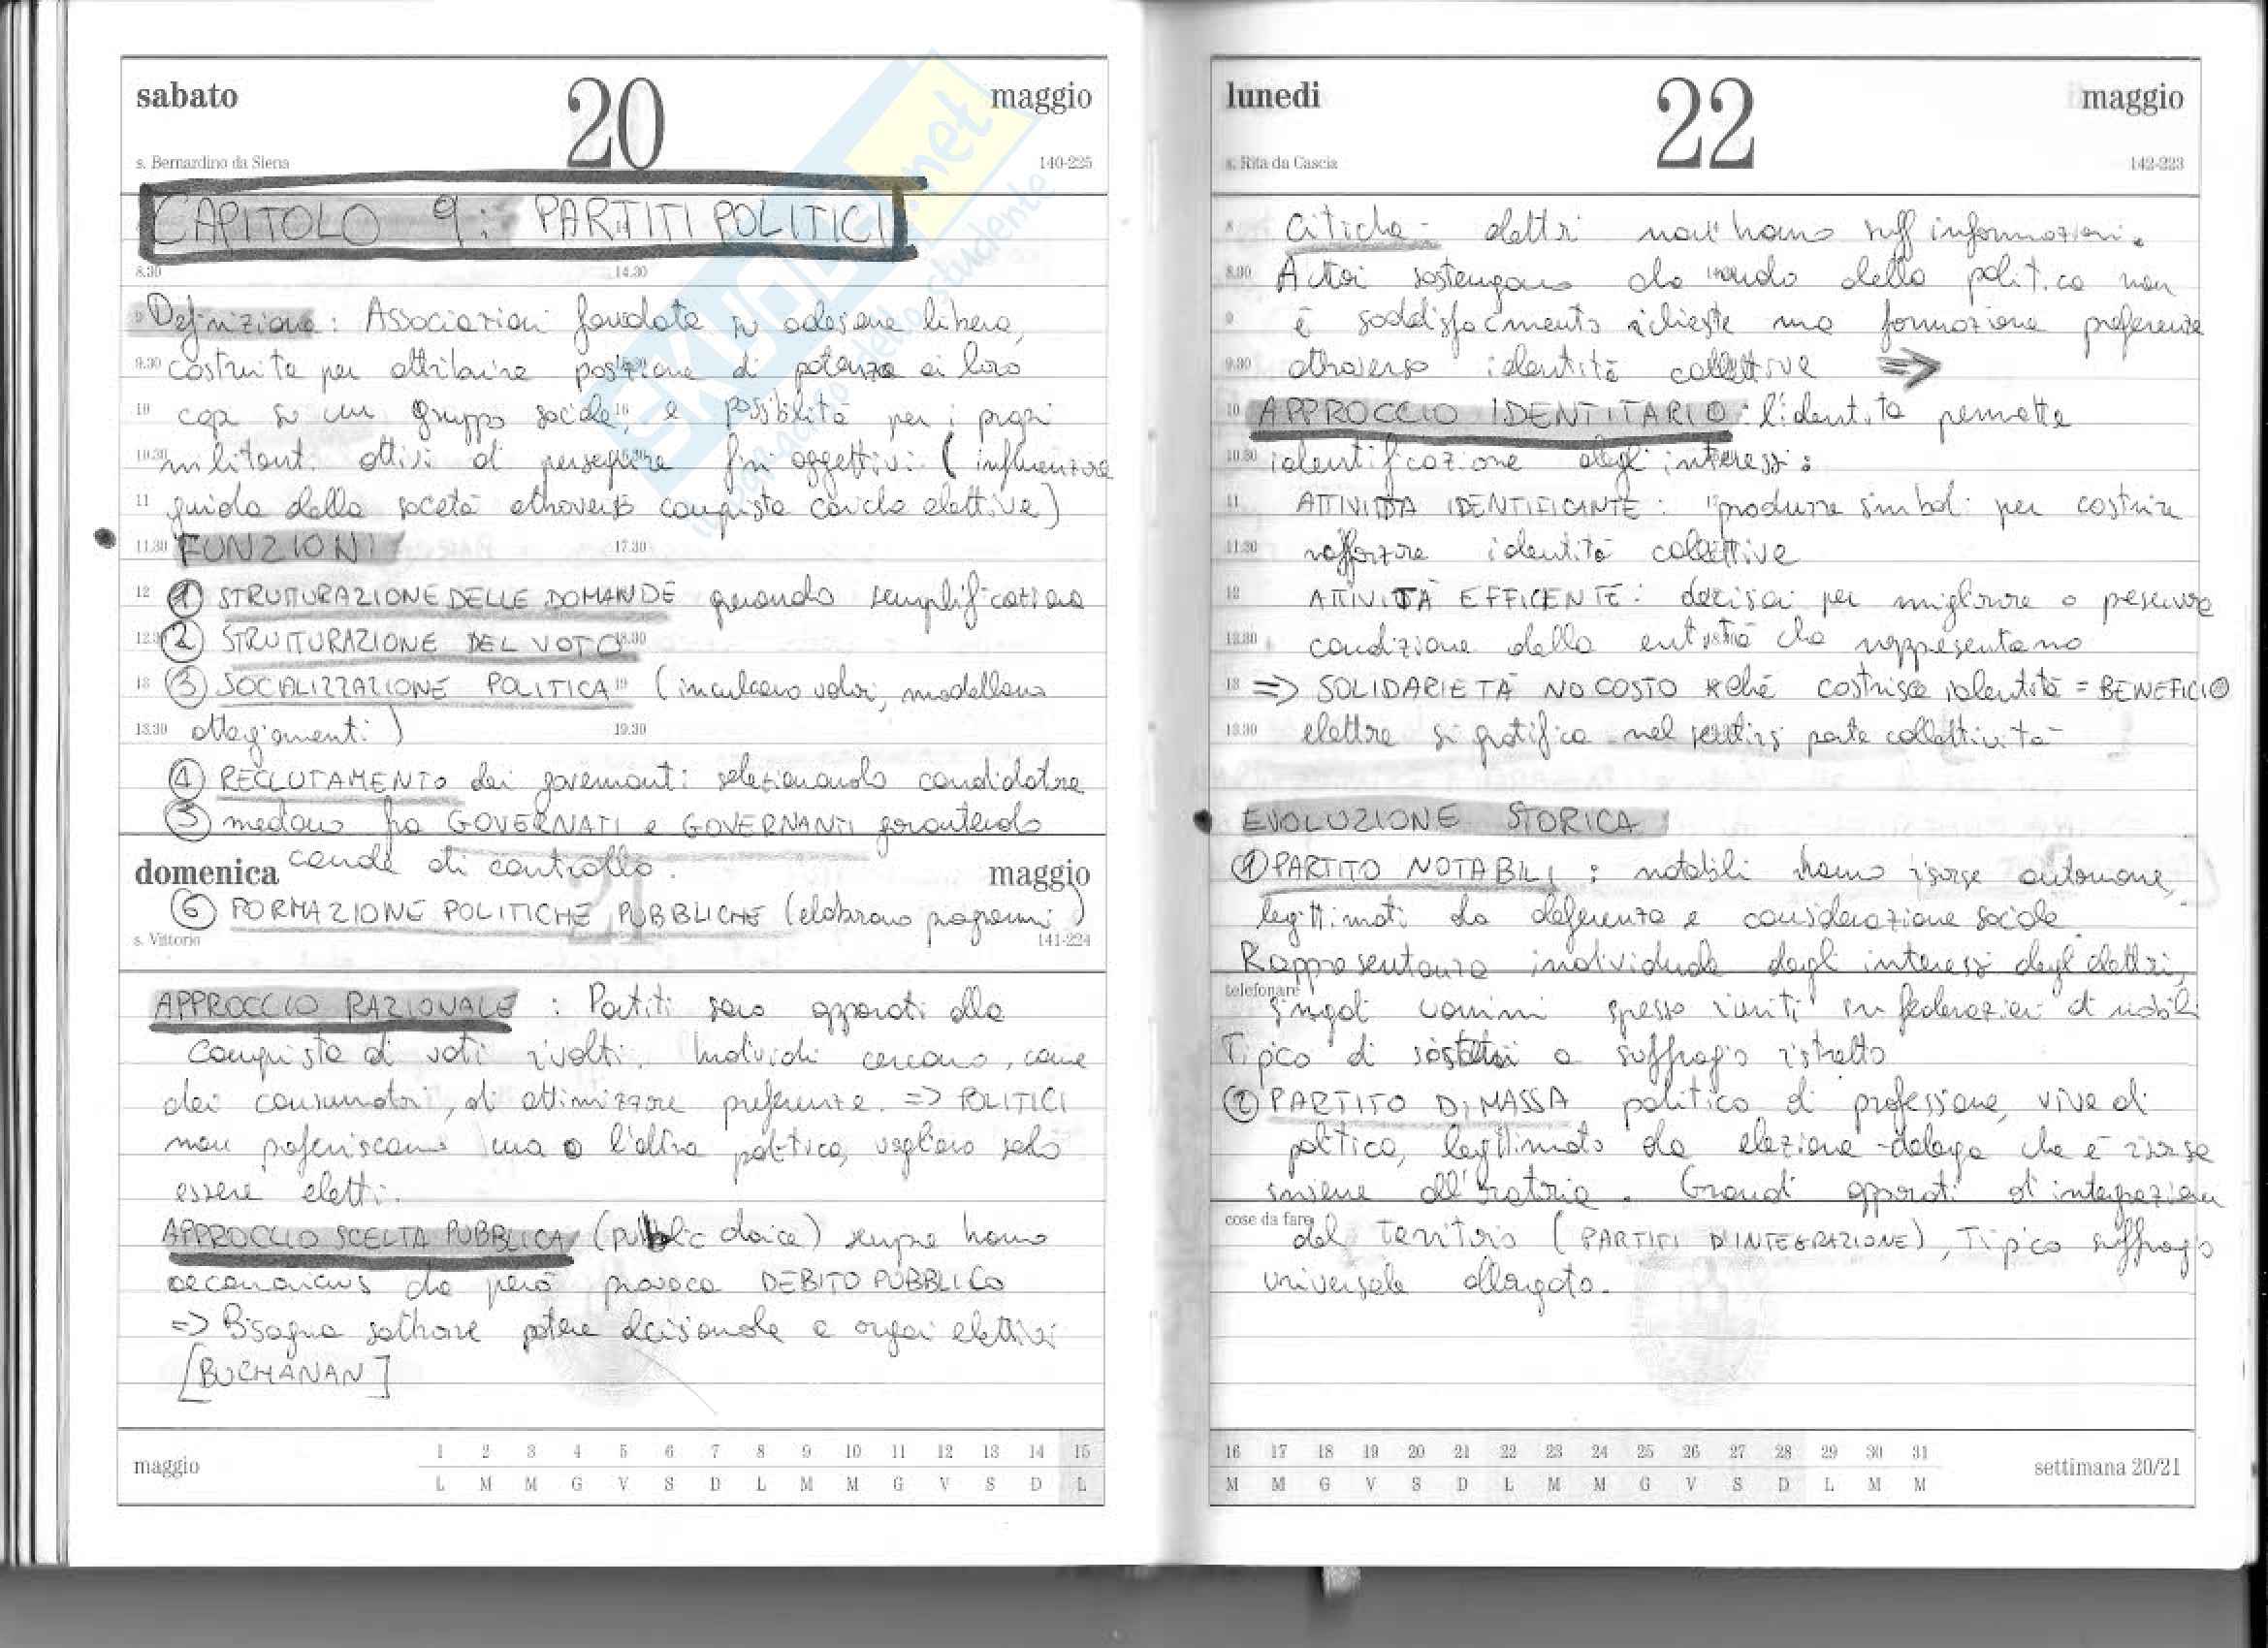 sabato 20 maggio
s. Bernardino da Siena 140-225
CAPITOLO 9: PARTITI POLITICI
8.30 14.30
9 Definizione: Associazioni fondate su adesione libera,
9.30 costruite per attribuire posizione di potenza ai loro
10 capi su un gruppo sociale, e possibilità per i propri
10.30 militanti attivi di perseguire fini oggettivi (influenzare
11 guida della società attraverso conquista cariche elettive)
11.30 FUNZIONI 17.30
12 1 STRUTTURAZIONE DELLE DOMANDE semplificazione
2 STRUTTURAZIONE DEL VOTO
13 3 SOCIALIZZAZIONE POLITICA 19 (inculcano valori, modellano
13.30 atteggiamenti) 19.30
4 RECLUTAMENTO dei governanti selezionando candidature
5 mediano fra GOVERNATI e GOVERNANTI garantendo
canale di controllo.
domenica 21 maggio
6 FORMAZIONE POLITICHE PUBBLICHE (elaborano programmi)
s. Vittorio 141-224
APPROCCIO RAZIONALE: Partiti sono apparati alla
conquista di voti rivolti. Individui cercano, come
dei consumatori, di ottimizzare preferenze. => POLITICI
non preferiscono una o l'altra politica, vogliono solo
essere eletti.
APPROCCIO SCELTA PUBBLICA (public choice) sempre homo
oeconomicus che però provoca DEBITO PUBBLICO
=> Bisogna sottrarre potere decisionale a organi elettivi
[BUCHANAN]
maggio 1 2 3 4 5 6 7 8 9 10 11 12 13 14 15
L M M G V S D L M M G V S D L
SKUOLA.net
lunedì 22 maggio
s. Rita da Cascia 142-223
8 Critiche - elettori non hanno suff informazioni.
8.30 Autori sostengono che mondo della politica non
9 è soddisfacimento richieste ma formazione preferenze
9.30 attraverso identità collettive =>
10 APPROCCIO IDENTITARIO: l'identità permette
10.30 identificazione degli interessi:
11 ATTIVITÀ IDENTIFICANTE: produrre simboli per costruire
11.30 rafforzare identità collettive
12 ATTIVITÀ EFFICENTE: decisioni per migliorare o preservare
12.30 condizione della entità che rappresentano
13 => SOLIDARIETÀ NO COSTO xché costruisce identità = BENEFICIO
13.30 elettore si gratifica nel sentirsi parte collettività
EVOLUZIONE STORICA
1 PARTITO NOTABILI: notabili hanno risorse autonome,
legittimati da deferenza e considerazione sociale.
Rappresentanza individuale degli interessi degli elettori,
telefonare
singoli uomini spesso riuniti in federazioni di nobili
Tipico di sistemi a suffragio ristretto
2 PARTITO DI MASSA politico di professione, vive di
politica, legittimato da elezione-delega che è risorsa
insieme all'oratoria. Grandi apparati di integrazione
cose da fare
del territorio (PARTITI D'INTEGRAZIONE), Tipico suffragio
universale allargato.
16 17 18 19 20 21 22 23 24 25 26 27 28 29 30 31
M M G V S D L M M G V S D L M M
settimana 20/21